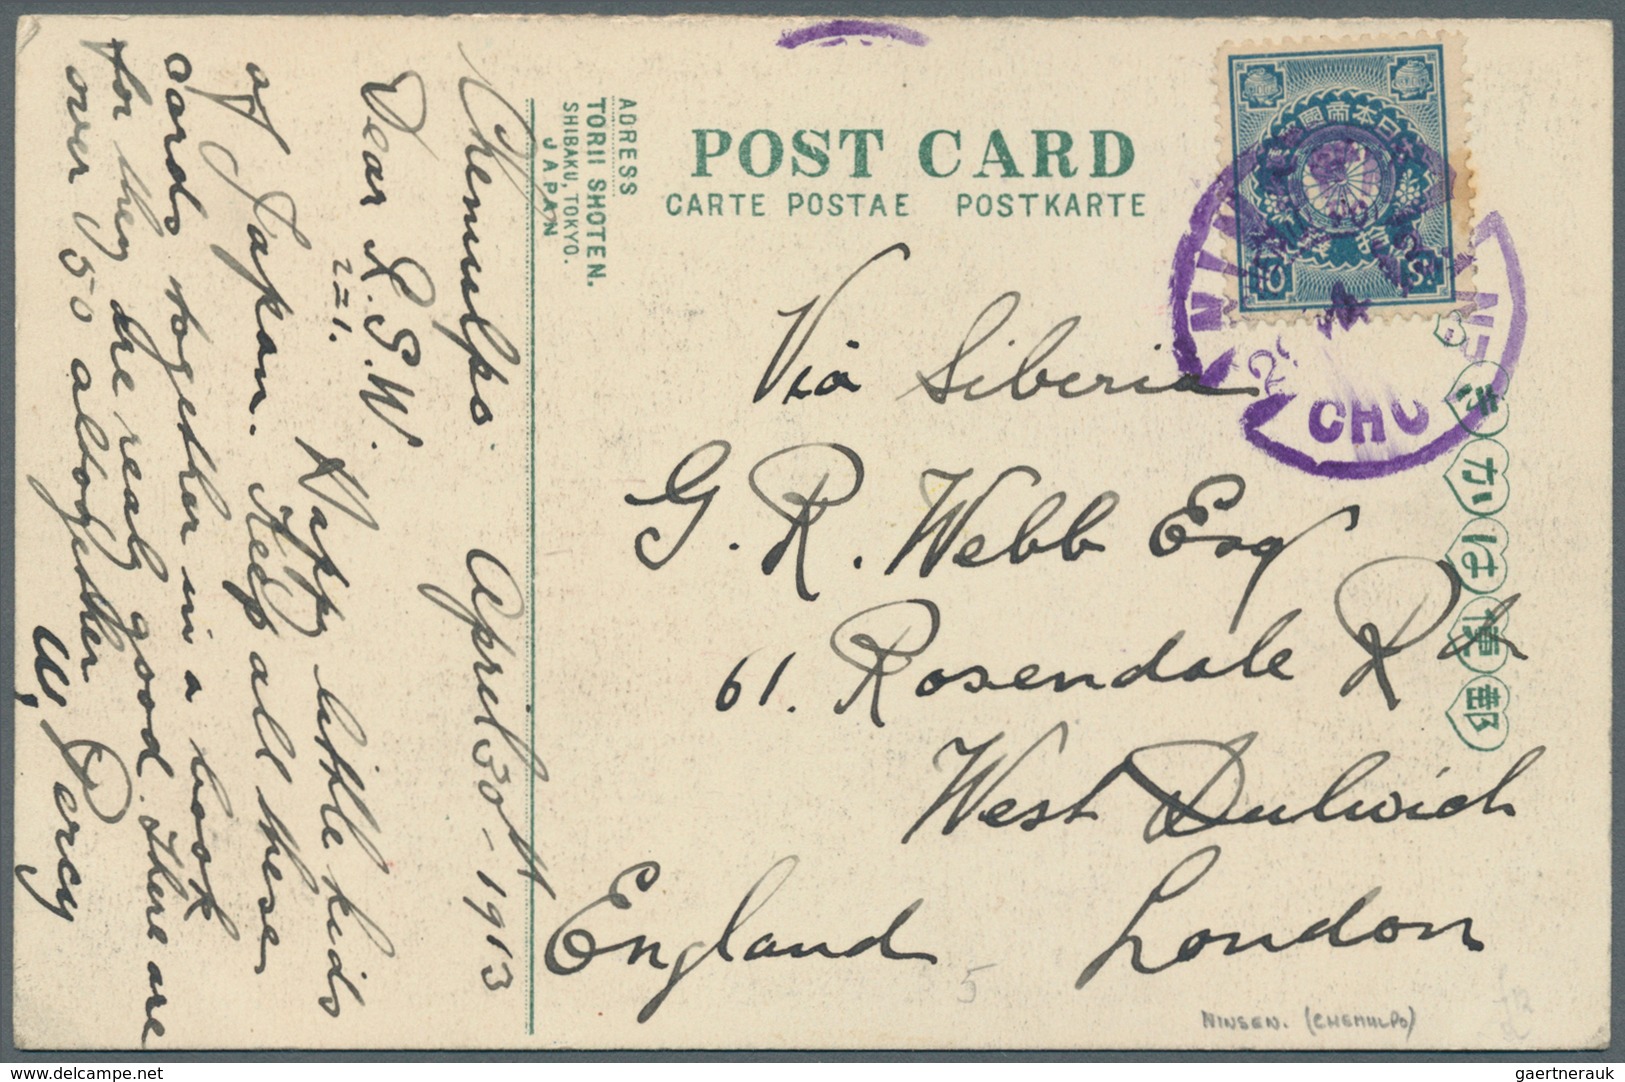 Chemulpo. April 30th - 1913
Dear L.G.W.
221.
Happy little kids
of Japan. Keep all these
cards together in a book
for they are realy good. There are
over 150 altogether
W. Percy
ADRESS
TORII SHOTEN.
SHIBAKU, TOKYO.
JAPAN
POST CARD
CARTE POSTAE POSTKARTE
10 S.
CHO
きかは便郵
Via Siberia
G. R. Webb Esq
61. Rosendale Rd
West Dulwich
London
England
5
NINSEN. (CHEMULPO)
www.delcampe.net
gaertnerauk